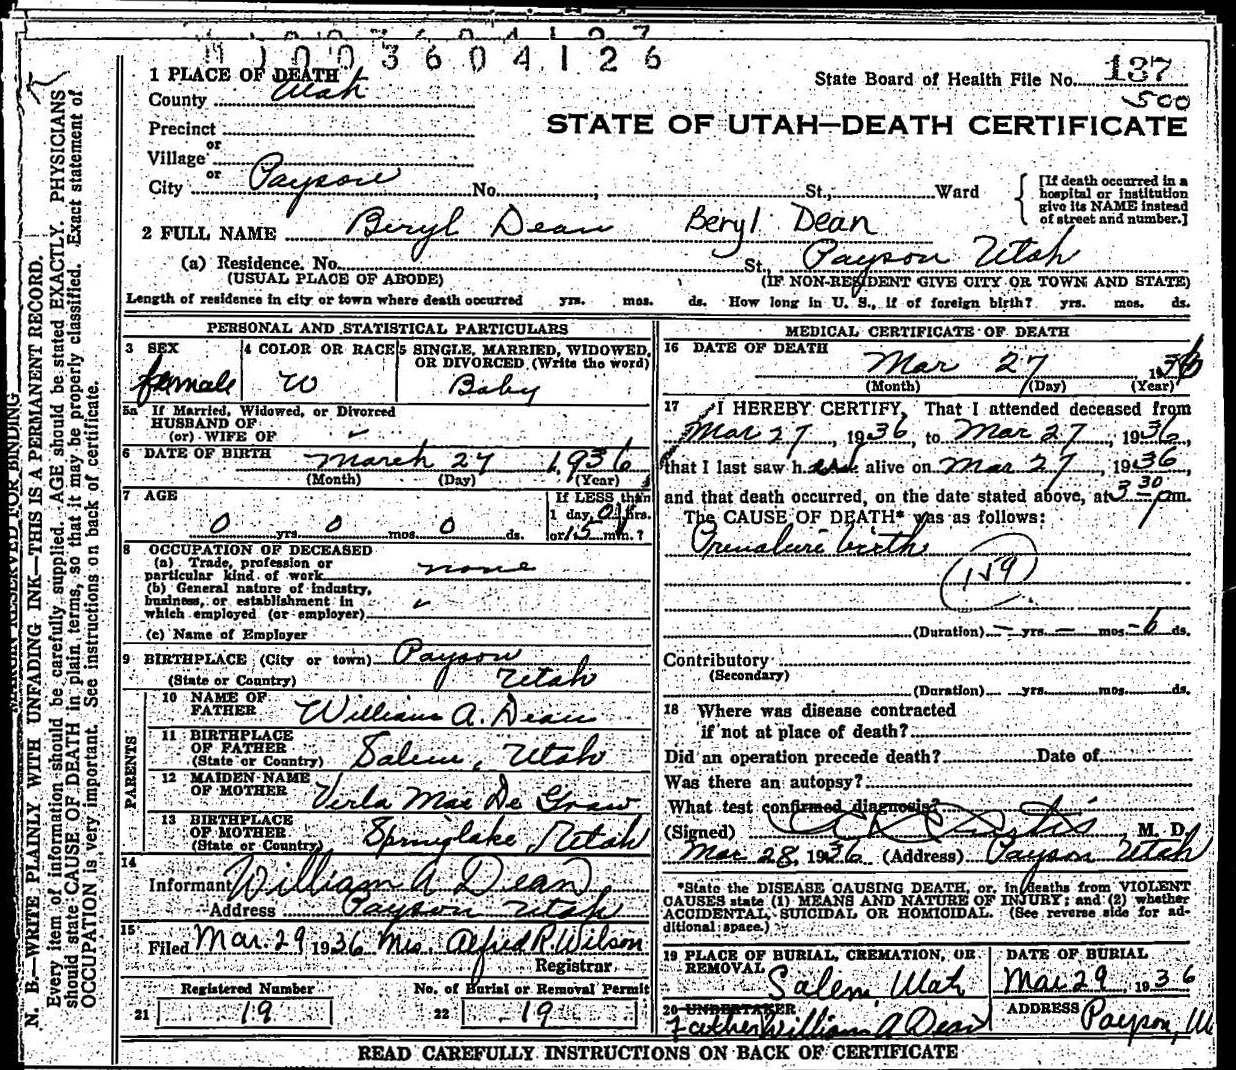 11003604126
1 PLACE OF DEATH
State Board of Health File No. 137
County Utah
500
Precinct
STATE OF UTAH—DEATH CERTIFICATE
or
Village
or
City Payson No. , St., Ward
[If death occurred in a hospital or institution give its NAME instead of street and number.]
2 FULL NAME Beryl Dean Beryl Dean
(a) Residence. No. St., Payson Utah
(USUAL PLACE OF ABODE) (IF NON-RESIDENT GIVE CITY OR TOWN AND STATE)
Length of residence in city or town where death occurred yrs. mos. ds. How long in U. S., if of foreign birth? yrs. mos. ds.
PERSONAL AND STATISTICAL PARTICULARS
3 SEX
female
4 COLOR OR RACE
W
5 SINGLE, MARRIED, WIDOWED, OR DIVORCED (Write the word)
Baby
5a If Married, Widowed, or Divorced
HUSBAND OF
(or) WIFE OF
6 DATE OF BIRTH March 27 1936
(Month) (Day) (Year)
7 AGE
0 yrs. 0 mos. 0 ds.
If LESS than
1 day, 0 hrs.
or 15 min.?
8 OCCUPATION OF DECEASED
(a) Trade, profession or
particular kind of work none
(b) General nature of industry,
business, or establishment in
which employed (or employer)
(c) Name of Employer
9 BIRTHPLACE (City or town) Payson
(State or Country) Utah
PARENTS
10 NAME OF
FATHER William A. Dean
11 BIRTHPLACE
OF FATHER
(State or Country) Salem, Utah
12 MAIDEN NAME
OF MOTHER Verla Mae De Graw
13 BIRTHPLACE
OF MOTHER
(State or Country) Springlake, Utah
14
Informant William A Dean
Address Payson Utah
15
Filed Mar. 29 1936 Mrs. Alfred R. Wilson
Registrar
Registered Number
21 19
No. of Burial or Removal Permit
22 19
MEDICAL CERTIFICATE OF DEATH
16 DATE OF DEATH
Mar 27 1936
(Month) (Day) (Year)
17 I HEREBY CERTIFY, That I attended deceased from
Mar 27, 1936, to Mar 27, 1936,
that I last saw her alive on Mar 27, 1936,
and that death occurred, on the date stated above, at 3 30 pm.
The CAUSE OF DEATH* was as follows:
Premature birth
159
(Duration) — yrs. — mos. - 6 ds.
Contributory
(Secondary)
(Duration) yrs. mos. ds.
18 Where was disease contracted
if not at place of death?
Did an operation precede death? Date of
Was there an autopsy?
What test confirmed diagnosis?
(Signed) M. D.
Mar 28, 1936 (Address) Payson Utah
*State the DISEASE CAUSING DEATH, or, in deaths from VIOLENT
CAUSES state (1) MEANS AND NATURE OF INJURY; and (2) whether
ACCIDENTAL, SUICIDAL OR HOMICIDAL. (See reverse side for ad-
ditional space.)
19 PLACE OF BURIAL, CREMATION, OR
REMOVAL Salem, Utah
DATE OF BURIAL
Mar 29, 1936
20 UNDERTAKER
Father William A Dean
ADDRESS Payson, Ut
READ CAREFULLY INSTRUCTIONS ON BACK OF CERTIFICATE
MARGIN RESERVED FOR BINDING
N. B.—WRITE PLAINLY WITH UNFADING INK—THIS IS A PERMANENT RECORD.
Every item of information should be carefully supplied. AGE should be stated EXACTLY. PHYSICIANS
should state CAUSE OF DEATH in plain terms, so that it may be properly classified. Exact statement of
OCCUPATION is very important. See instructions on back of certificate.